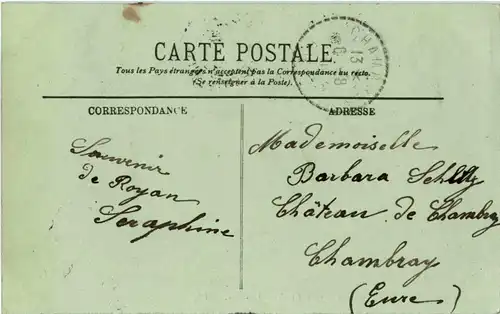 CARTE POSTALE
Tous les Pays étrangers n'acceptent pas la Correspondance au recto.
(Se renseigner à la Poste).
CORRESPONDANCE
ADRESSE
Souvenir
de Royan
Seraphine
Mademoiselle
Barbara
Château de Chambray
Chambray
(Eure)